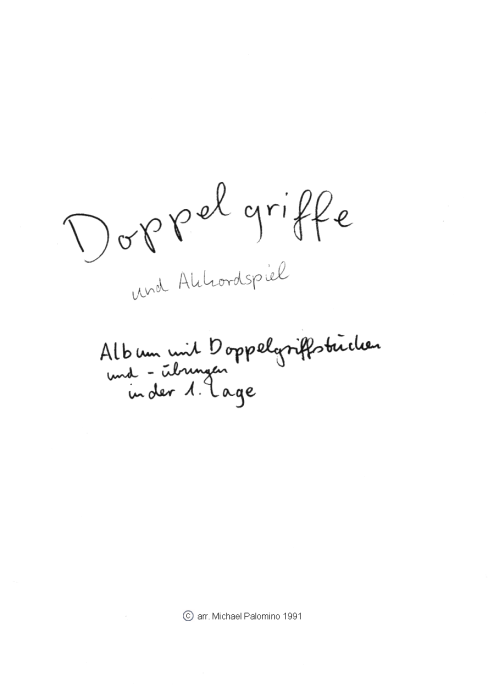 Doppelgriffe
und Akkordspiel
Album mit Doppelgriffstücken
und - übungen
in der 1. Lage
© arr. Michael Palomino 1991